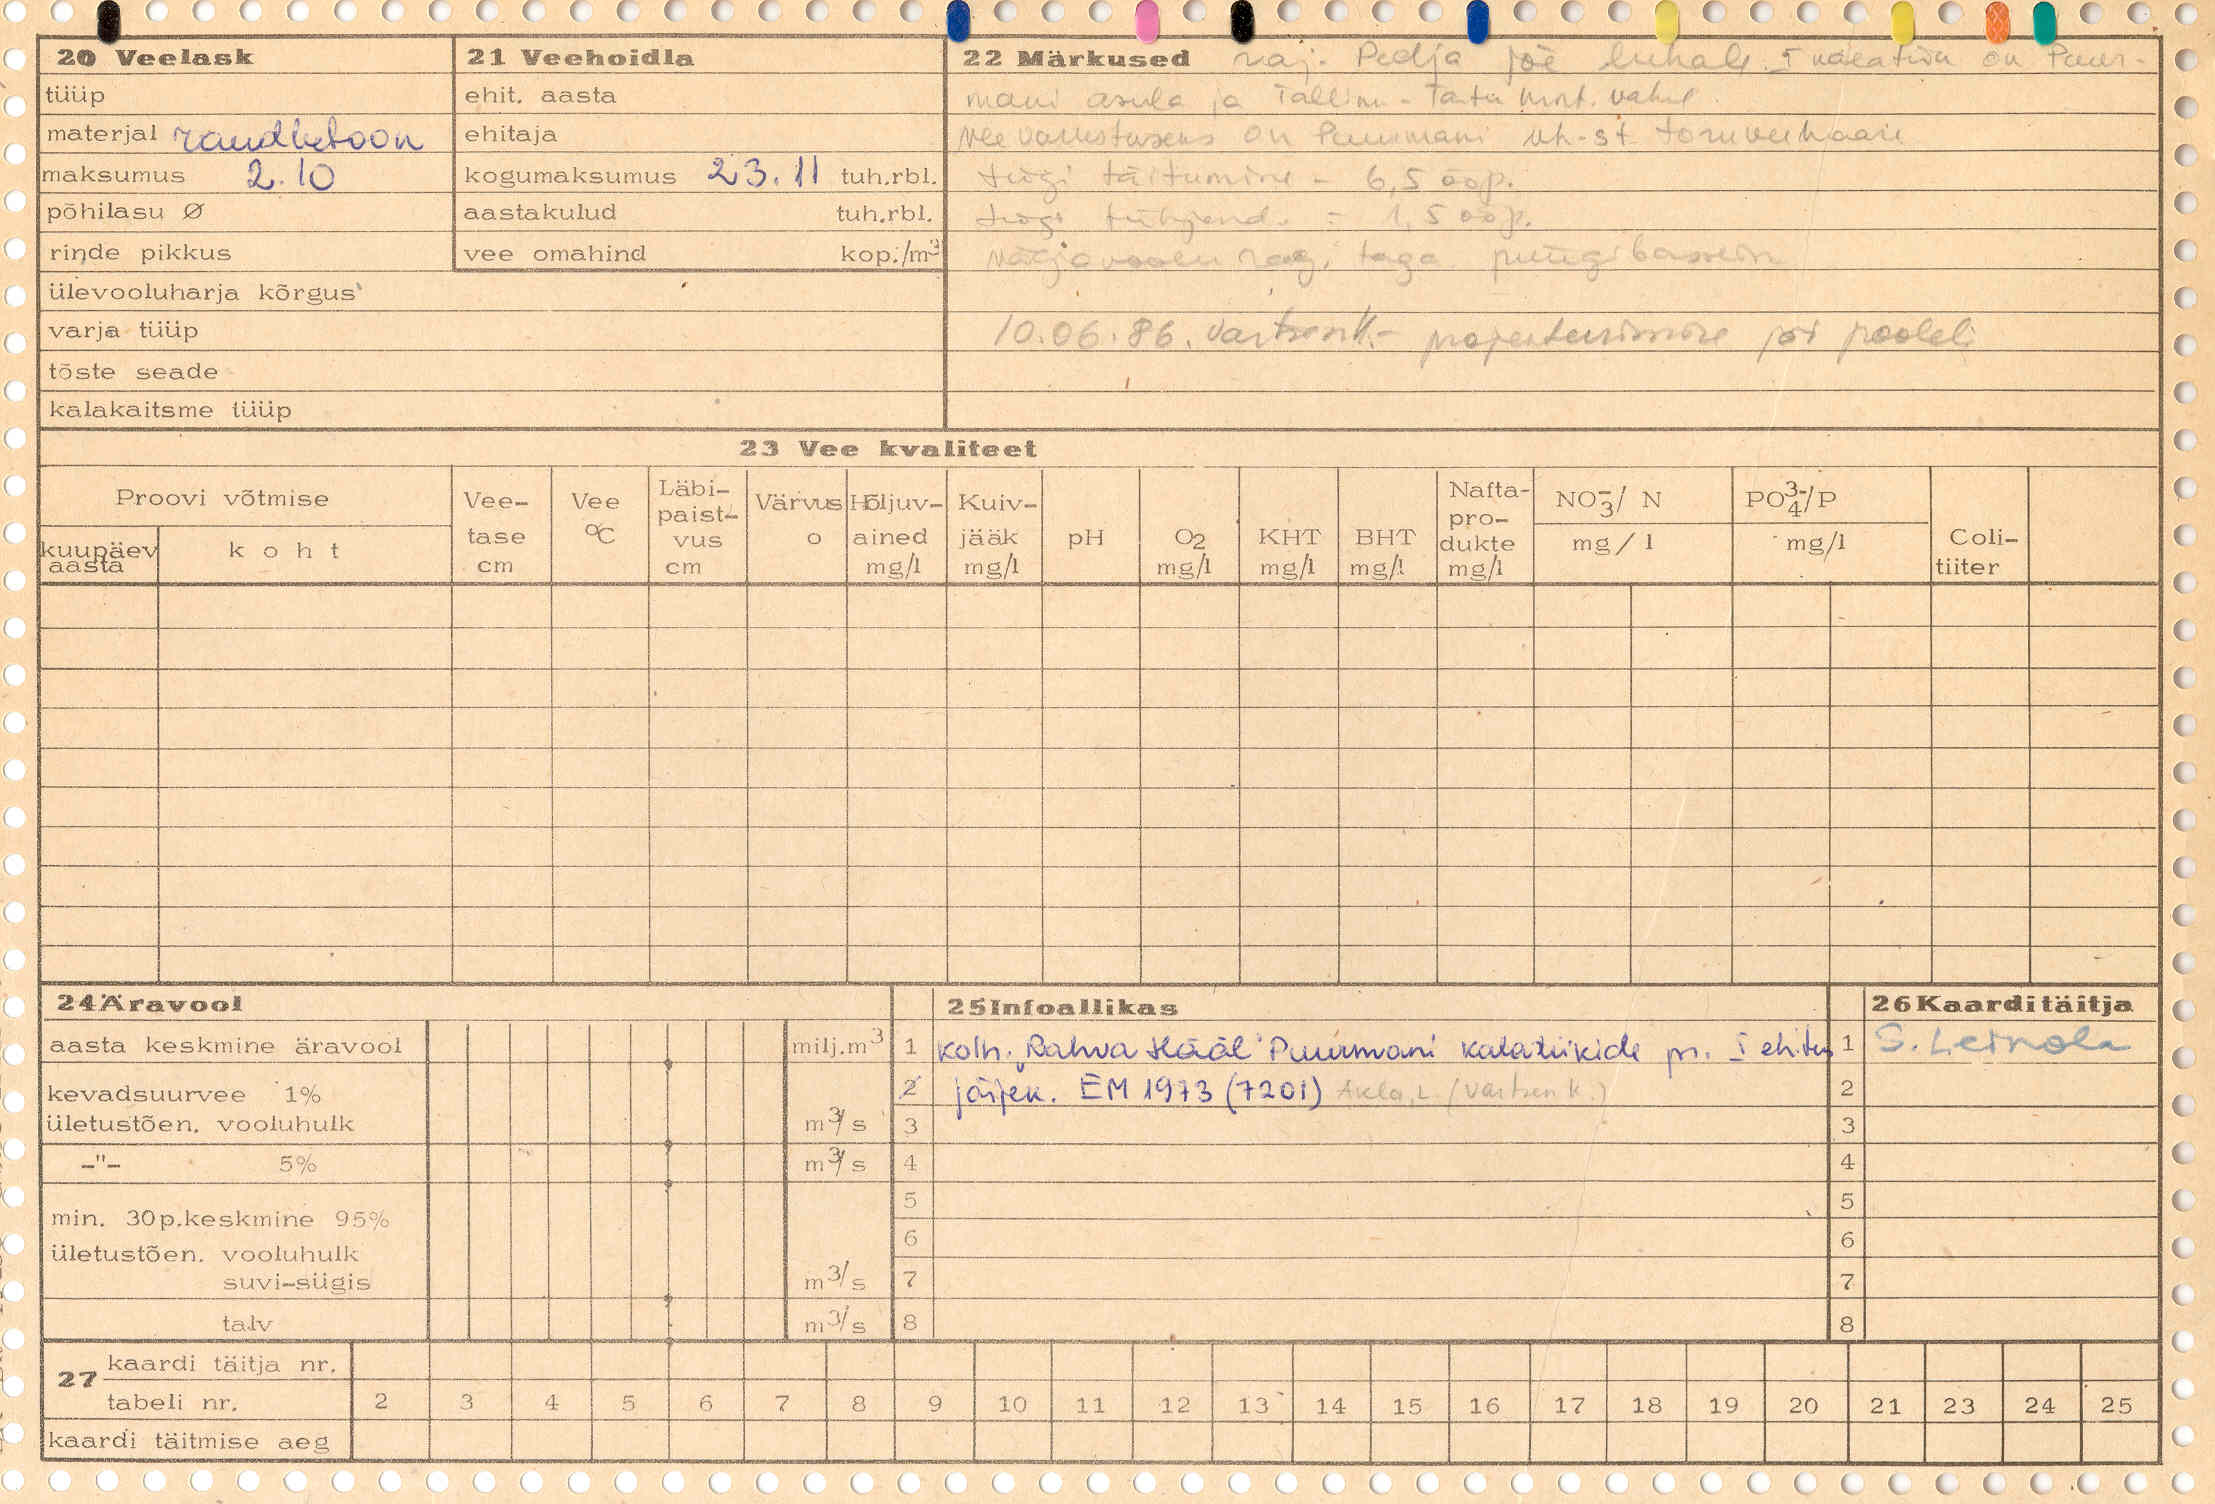 20 Veelask
tüüp
materjal raudbetoon
maksumus 2.10
põhilasu Ø
rinde pikkus
ülevooluharja kõrgus
varja tüüp
tõste seade
kalakaitsme tüüp
21 Veehoidla
ehit. aasta
ehitaja
kogumaksumus 23.11 tuh.rbl.
aastakulud tuh.rbl.
vee omahind kop./m³
22 Märkused raj. Pedja jõe luhale. I on Puur-
mani asula ja Tallinn - Tartu mnt. vahel
vee varustuseks on Puurmani
tiigi täitumine - 6,5 ööp.
tiigi tühjend. = 1,5 ööp.
väljavoolu rag. taga püügibassein
10.06.86. Vartsen K. - projekteerimine jäi pooleli
23 Vee kvaliteet
Proovi võtmise
kuupäev aasta
koht
Vee-
tase
cm
Vee
°C
Läbi-
paist-
vus
cm
Värvus
o
Hõljuv-
ained
mg/l
Kuiv-
jääk
mg/l
pH
O₂
mg/l
KHT
mg/l
BHT
mg/l
Nafta-
pro-
dukte
mg/l
NO₃⁻/ N
mg/l
PO₄³⁻/P
mg/l
Coli-
tiiter
24 Äravool
aasta keskmine äravool milj.m³
kevadsuurvee 1%
ületustõen. vooluhulk m³/s
-"- 5% m³/s
min. 30p.keskmine 95%
ületustõen. vooluhulk
suvi-sügis m³/s
talv m³/s
25 Infoallikas
1 kolh. Rahva Hääl Puurmani kalatiikide pr. I ehitus
2 järjek. EM 1973 (7201) Akla, L. (Vartsen K.)
3
4
5
6
7
8
26 Kaarditäitja
1 S. Leinola
2
3
4
5
6
7
8
27 kaardi täitja nr.
tabeli nr. 2 3 4 5 6 7 8 9 10 11 12 13 14 15 16 17 18 19 20 21 23 24 25
kaardi täitmise aeg